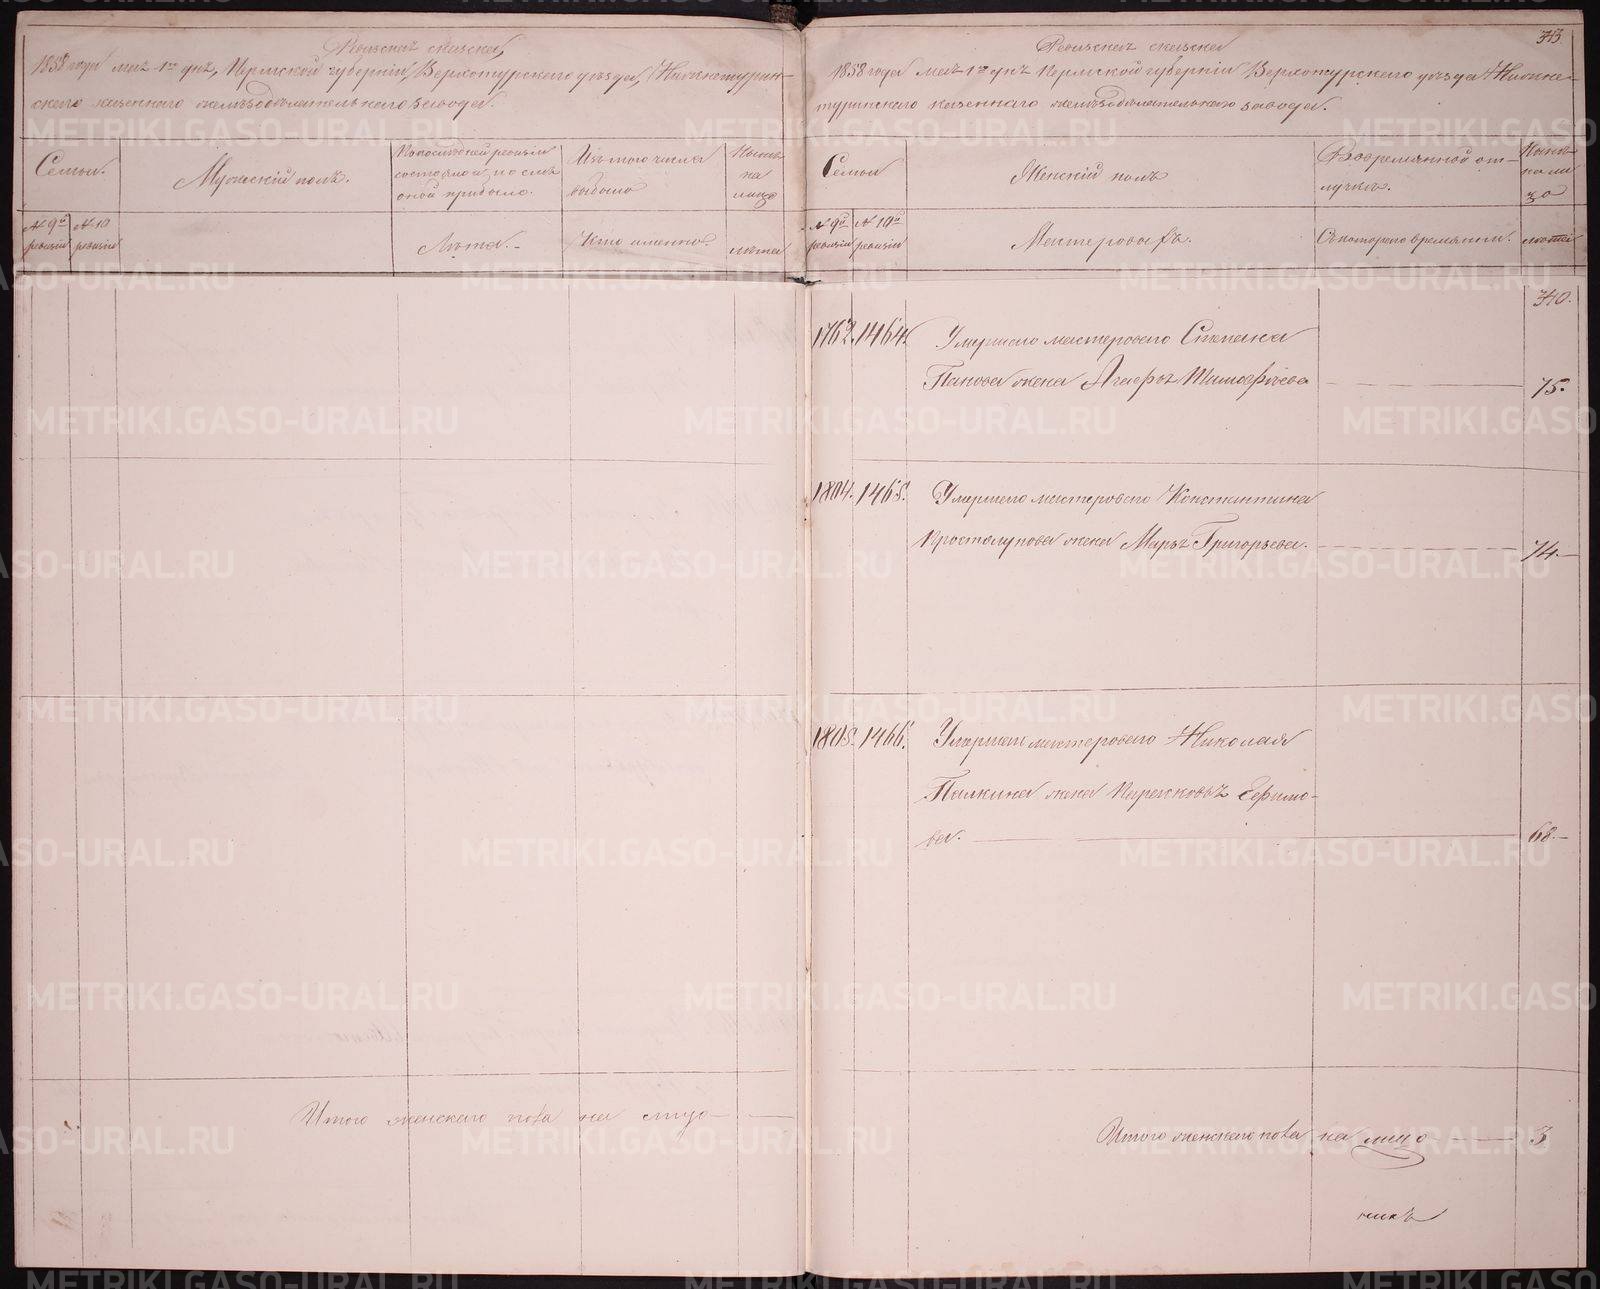 Ревизская сказка,
1858 года мая 1го дня, Пермской губерніи, Верхотурскаго уѣзда, Нижнетурин-
скаго казеннаго желѣзодѣлательнаго завода.
Семьи.
Мужескій полъ.
По послѣдней ревизіи
состояло и послѣ
оной прибыло.
Изъ того числа
выбыло
Нынѣ
на
лицо
№ 9й
ревизіи
№ 10
ревизіи
Лѣта.
Кто именно.
лѣта
Итого женскаго пола на лицо
343.
Ревизская сказка
1858 года мая 1го дня Пермской губерніи Верхотурскаго уѣзда Нижне-
туринскаго казеннаго желѣзодѣлательнаго завода.
Семьи
Женскій полъ
Во временной от-
лучкѣ.
Нынѣ
на ли
цо
№ 9й
ревизіи
№ 10й
ревизіи
Мастеровыхъ.
Съ котораго времянни.
лѣта
340.
1762. 1464. Умершаго мастероваго Степана
Панова жена Агафья Тимофѣева 75.
1804. 1465. Умершаго мастероваго Константина
Простолупова жена Марья Григорьева. 74.
1805. 1466. Умершаго мастероваго Николая
Палкина жена Парасковья Ефимо-
ва. 68.
Итого женскаго пола на лицо 3